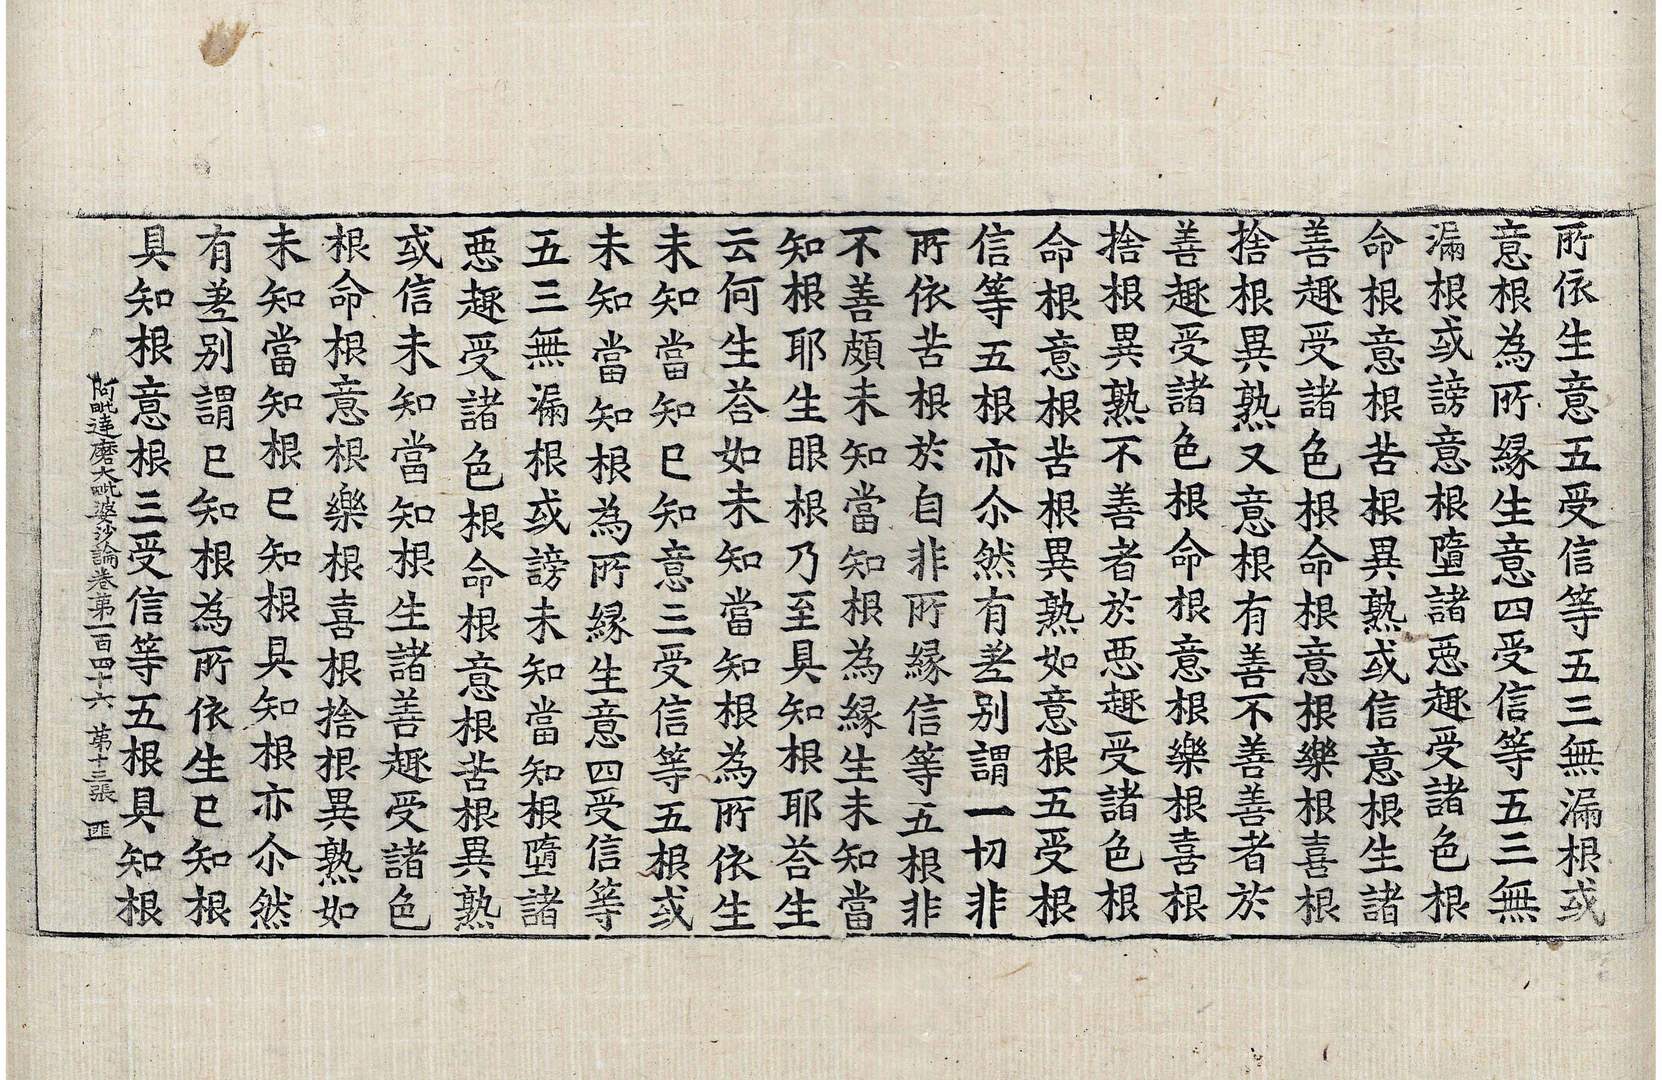 所依生意五受信等五三無漏根或
意根為所縁生意四受信等五三無
漏根或謗意根墮諸惡趣受諸色根
命根意根苦根異熟或信意根生諸
善趣受諸色根命根意根樂根喜根
捨根異熟又意根有善不善善者於
善趣受諸色根命根意根樂根喜根
捨根異熟不善者於惡趣受諸色根
命根意根苦根異熟如意根五受根
信等五根亦尒然有差别謂一切非
所依苦根於自非所縁信等五根非
不善頗未知當知根為縁生未知當
知根耶生眼根乃至具知根耶荅生
云何生荅如未知當知根為所依生
未知當知已知意三受信等五根或
未知當知根為所縁生意四受信等
五三無漏根或謗未知當知根墮諸
惡趣受諸色根命根意根苦根異熟
或信未知當知根生諸善趣受諸色
根命根意根樂根喜根捨根異熟如
未知當知根已知根具知根亦尒然
有差别謂已知根為所依生已知根
具知根意根三受信等五根具知根
阿毗達磨大毗婆沙論卷第一百四十六 第十三張 匪